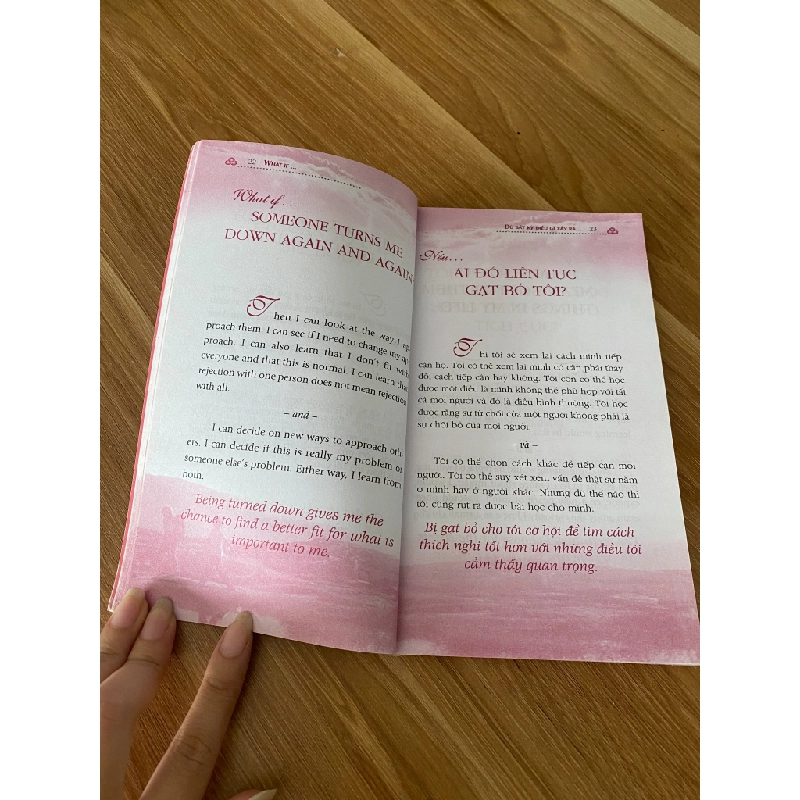 What if...
What if...
SOMEONE TURNS ME
DOWN AGAIN AND AGAIN?
Then I can look at the way I ap-
proach them. I can see if I need to change my ap-
proach. I can also learn that I don't fit with
everyone and that this is normal. I can learn that
rejection with one person does not mean rejection
with all.
– and –
I can decide on new ways to approach oth-
ers. I can decide if this is really my problem or
someone else's problem. Either way, I learn from
Being turned down gives me the
chance to find a better fit for what is
important to me.
DÙ BẤT KỲ ĐIỀU GÌ XẢY RA 23
Nếu...
AI ĐÓ LIÊN TỤC
GẠT BỎ TÔI?
Thì tôi sẽ xem lại cách mình tiếp
cận họ. Tôi có thể xem lại mình có cần phải thay
đổi cách tiếp cận hay không. Tôi còn có thể học
được một điều là mình không thể phù hợp với tất
cả mọi người và đó là điều bình thường. Tôi học
được rằng sự từ chối của một người không phải là
sự chối bỏ của mọi người.
– Và –
Tôi có thể chọn cách khác để tiếp cận mọi
người. Tôi có thể suy xét xem vấn đề thật sự nằm
ở mình hay ở người khác. Nhưng dù thế nào thì
tôi cũng rút ra được bài học cho mình.
Bị gạt bỏ cho tôi cơ hội để tìm cách
thích nghi tốt hơn với những điều tôi
cảm thấy quan trọng.